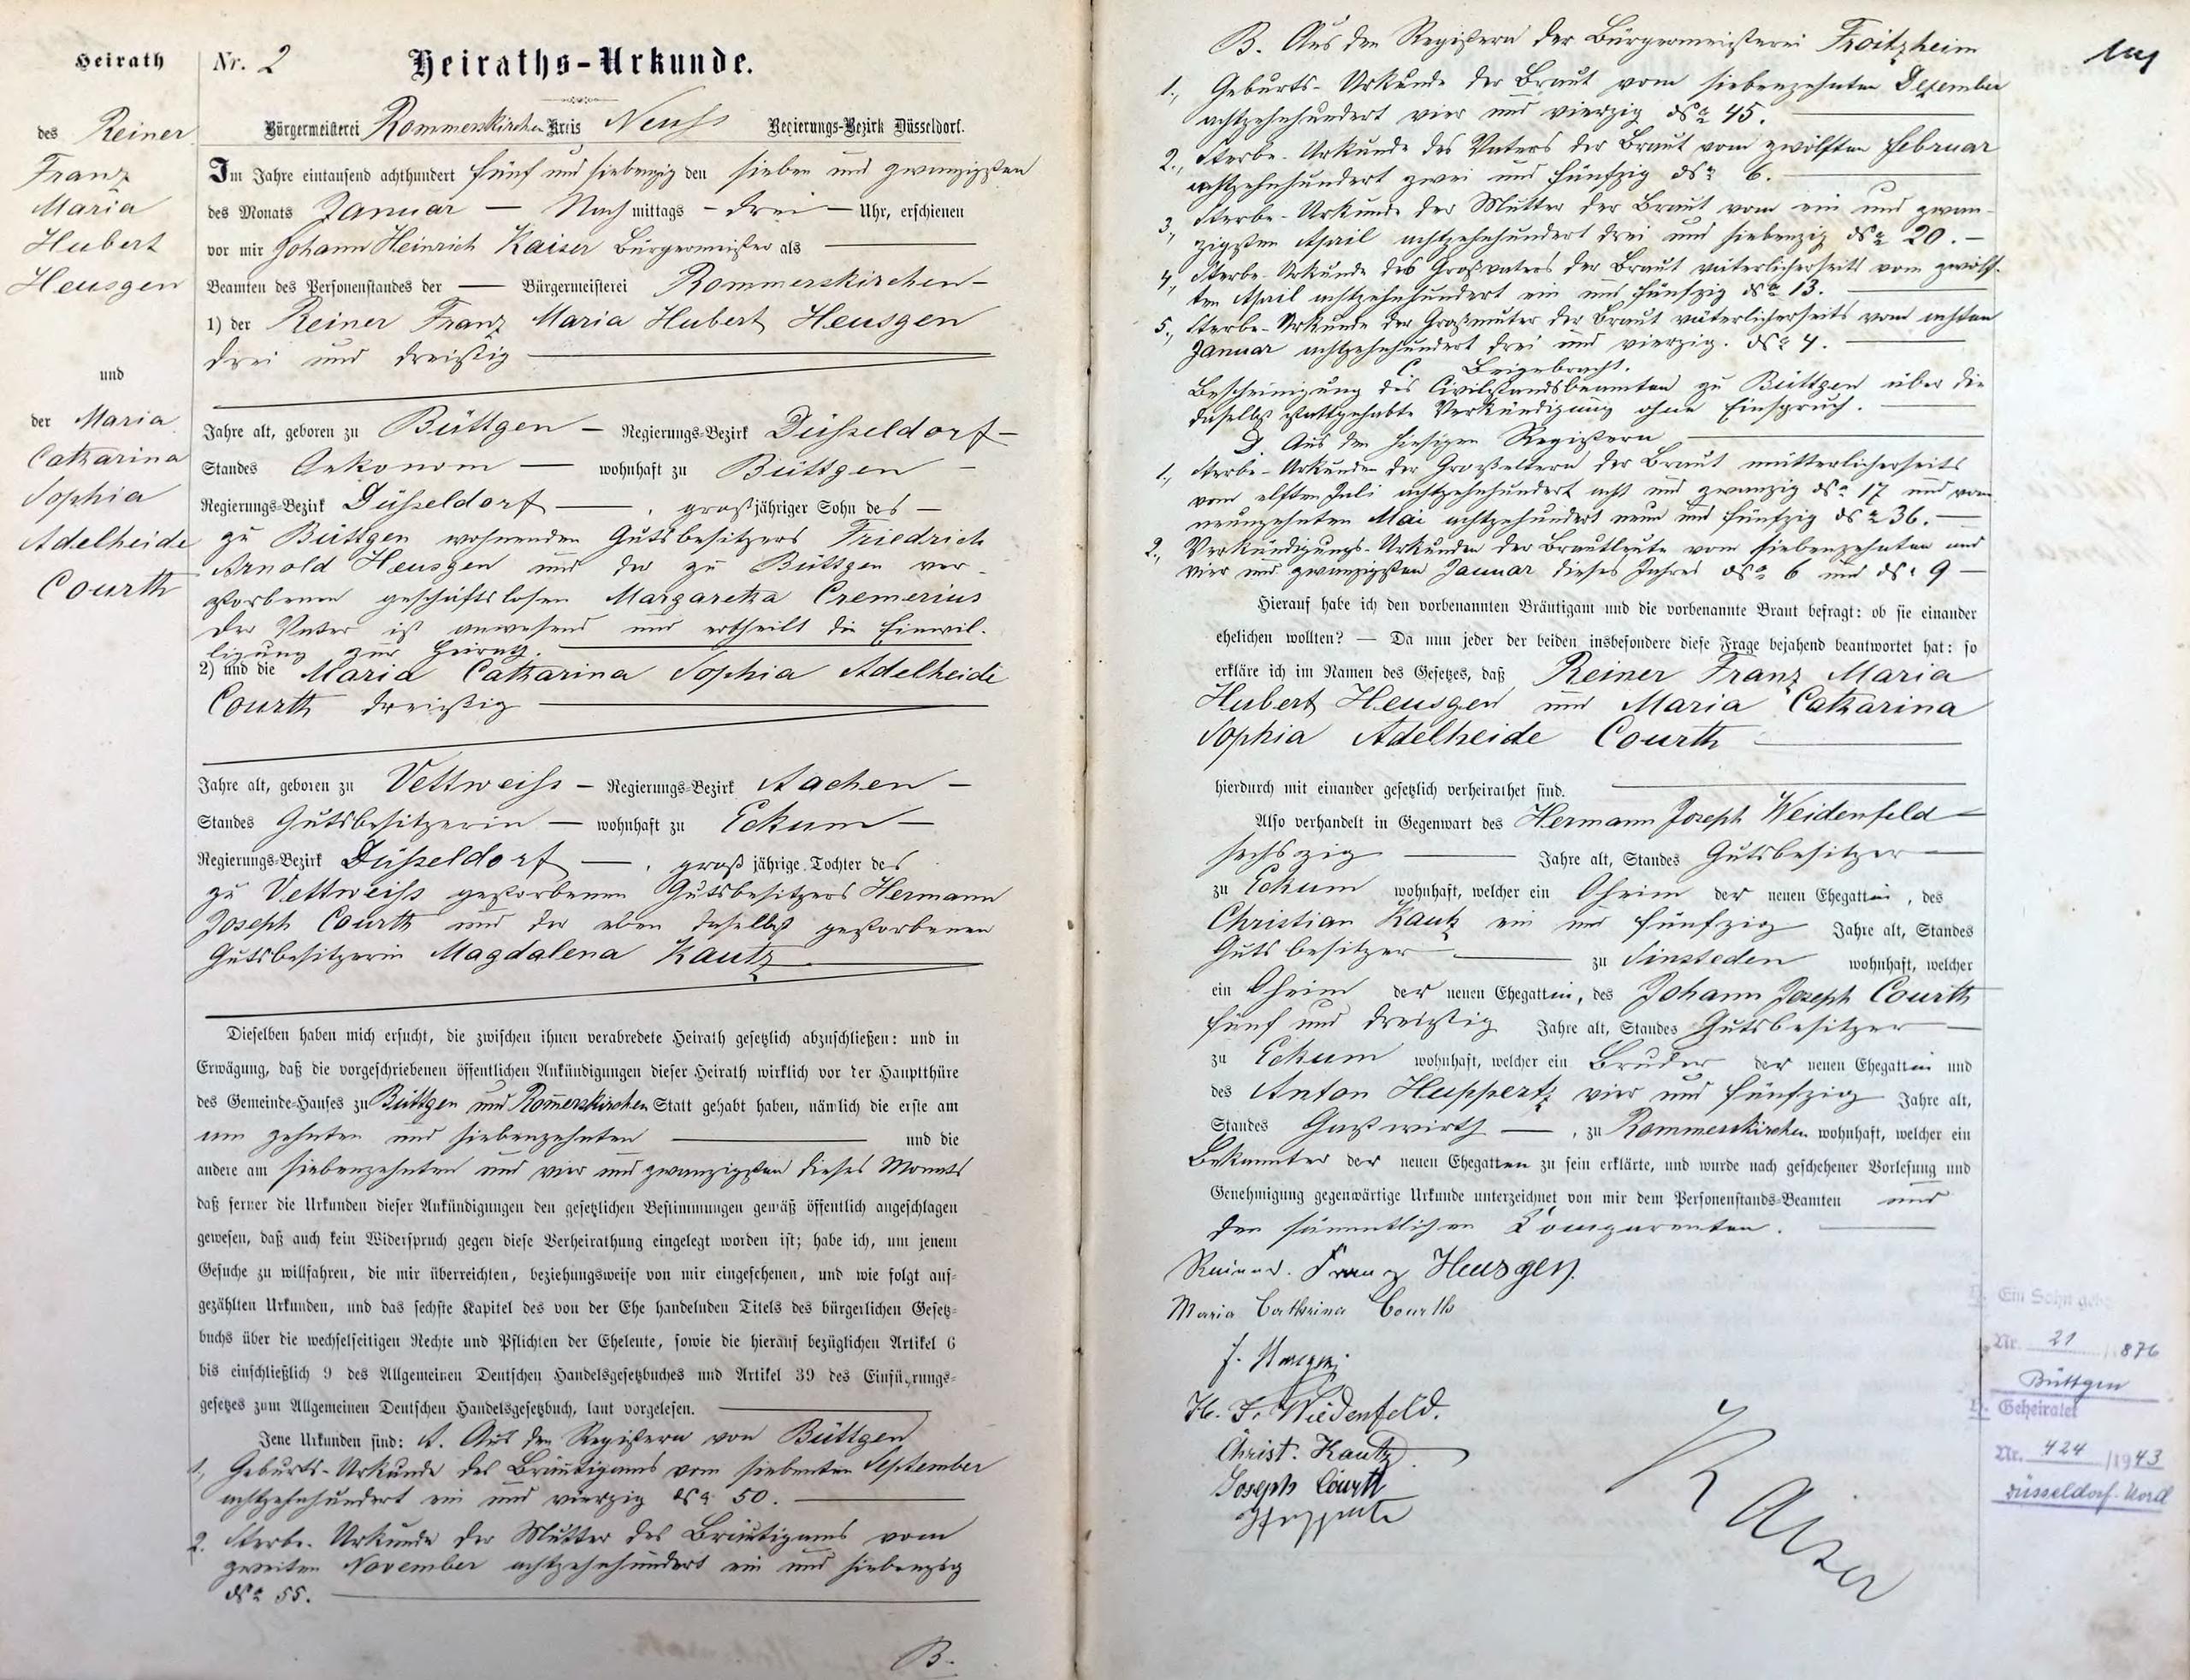 Heirath
des Reiner
Franz
Maria
Hubert
Heusgen
und
der Maria
Catharina
Sophia
Adelheide
Courth
Nr. 2 Heiraths-Urkunde.
Bürgermeisterei Rommerskirchen Kreis Neuss Regierungs-Bezirk Düsseldorf.
Im Jahre eintausend achthundert fünf und siebenzig den sieben und zwanzigsten
des Monats Januar — Nachmittags — drei — Uhr, erschienen
vor mir Johann Heinrich Kaiser Bürgermeister als
Beamten des Personenstandes der — Bürgermeisterei Rommerskirchen —
1) der Reiner Franz Maria Hubert Heusgen
drei und dreißig
Jahre alt, geboren zu Büttgen — Regierungs-Bezirk Düsseldorf —
Standes Oekonom — wohnhaft zu Büttgen —
Regierungs-Bezirk Düsseldorf —, großjähriger Sohn des —
zu Büttgen wohnenden Gutsbesitzers Friedrich
Arnold Heusgen und der zu Büttgen ver-
storbenen geschäftslosen Margaretha Cremerius
der Vater ist anwesend und ertheilt die Einwil-
ligung zur Heirath.
2) und die Maria Catharina Sophia Adelheide
Courth dreißig
Jahre alt, geboren zu Vettweiss — Regierungs-Bezirk Aachen —
Standes Gutsbesitzerin — wohnhaft zu Eckum —
Regierungs-Bezirk Düsseldorf —, großjährige Tochter des
zu Vettweiss gestorbenen Gutsbesitzers Hermann
Joseph Courth und der eben daselbst gestorbenen
Gutsbesitzerin Magdalena Kautz
Dieselben haben mich ersucht, die zwischen ihnen verabredete Heirath gesetzlich abzuschließen: und in
Erwägung, daß die vorgeschriebenen öffentlichen Ankündigungen dieser Heirath wirklich vor der Hauptthüre
des Gemeinde-Hauses zu Büttgen und Rommerskirchen Statt gehabt haben, nämlich die erste am
am zehnten und siebenzehnten — und die
andere am siebenzehnten und vier und zwanzigsten dieses Monats
daß ferner die Urkunden dieser Ankündigungen den gesetzlichen Bestimmungen gemäß öffentlich angeschlagen
gewesen, daß auch kein Widerspruch gegen diese Verheirathung eingelegt worden ist; habe ich, um jenem
Gesuche zu willfahren, die mir überreichten, beziehungsweise von mir eingesehenen, und wie folgt auf-
gezählten Urkunden, und das sechste Kapitel des von der Ehe handelnden Titels des bürgerlichen Gesetz-
buchs über die wechselseitigen Rechte und Pflichten der Eheleute, sowie die hierauf bezüglichen Artikel 6
bis einschließlich 9 des Allgemeinen Deutschen Handelsgesetzbuches und Artikel 39 des Einführungs-
gesetzes zum Allgemeinen Deutschen Handelsgesetzbuch, laut vorgelesen.
Jene Urkunden sind: A. Aus den Registern von Büttgen
1., Geburts-Urkunde des Bräutigams vom siebenten September
achtzehnhundert ein und vierzig No 50.
2. Sterbe-Urkunde der Mutter des Bräutigams vom
zweiten November achtzehnhundert ein und siebenzig
No 55.
B.
B. Aus den Registern der Bürgermeisterei Froitzheim
1., Geburts-Urkunde der Braut vom siebenzehnten Dezember
achtzehnhundert vier und vierzig No 45.
2., Sterbe-Urkunde des Vaters der Braut vom zwölften Februar
achtzehnhundert zwei und fünfzig No 6.
3., Sterbe-Urkunde der Mutter der Braut vom ein und zwan-
zigsten April achtzehnhundert drei und siebenzig No 20. —
4., Sterbe-Urkunde des Großvaters der Braut väterlicherseits vom zwölf-
ten April achtzehnhundert ein und fünfzig No 13.
5., Sterbe-Urkunde der Großmuter der Braut väterlicherseits vom achten
Januar achtzehnhundert drei und vierzig. No 4.
C. Beigebracht.
Bescheinigung des Civilstandsbeamten zu Büttgen über die
daselbst stattgehabte Verkündigung ohne Einspruch.
D. Aus den hiesigen Registern
1., Sterbe-Urkunden der Großeltern der Braut mütterlicherseits
vom elften Juli achtzehnhundert acht und zwanzig No 17 und vom
neunzehnten Mai achtzehnhundert neun und fünfzig No 36. —
2., Verkündigungs-Urkunden der Brautleute vom siebenzehnten und
vier und zwanzigsten Januar dieses Jahres No 6 und No 9 —
Hierauf habe ich den vorbenannten Bräutigam und die vorbenannte Braut befragt: ob sie einander
ehelichen wollten? — Da nun jeder der beiden insbesondere diese Frage bejahend beantwortet hat: so
erkläre ich im Namen des Gesetzes, daß Reiner Franz Maria
Hubert Heusgen und Maria Catharina
Sophia Adelheide Courth
hierdurch mit einander gesetzlich verheirathet sind.
Also verhandelt in Gegenwart des Hermann Joseph Weidenfeld
sechszig — Jahre alt, Standes Gutsbesitzer —
zu Eckum wohnhaft, welcher ein Oheim der neuen Ehegattin, des
Christian Kautz ein und fünfzig Jahre alt, Standes
Gutsbesitzer — zu Sinsteden wohnhaft, welcher
ein Oheim der neuen Ehegattin, des Johann Joseph Courth
fünf und dreißig Jahre alt, Standes Gutsbesitzer —
zu Eckum wohnhaft, welcher ein Bruder der neuen Ehegattin und
des Anton Huppertz vier und fünfzig Jahre alt,
Standes Gastwirth —, zu Rommerskirchen wohnhaft, welcher ein
Bekannter der neuen Ehegatten zu sein erklärte, und wurde nach geschehener Vorlesung und
Genehmigung gegenwärtige Urkunde unterzeichnet von mir dem Personenstands-Beamten und
den sämmtlichen Comparenten.
Reiner. Franz Heusgen.
Maria Catharina Courth
F. Heusgen
H. J. Wiedenfeld.
Christ. Kautz
Joseph Courth
Huppertz
Kaiser
Ein Sohn geb
Nr. 21 / 1876
Büttgen
Geheiratet
Nr. 424 / 1943
Düsseldorf-Nord